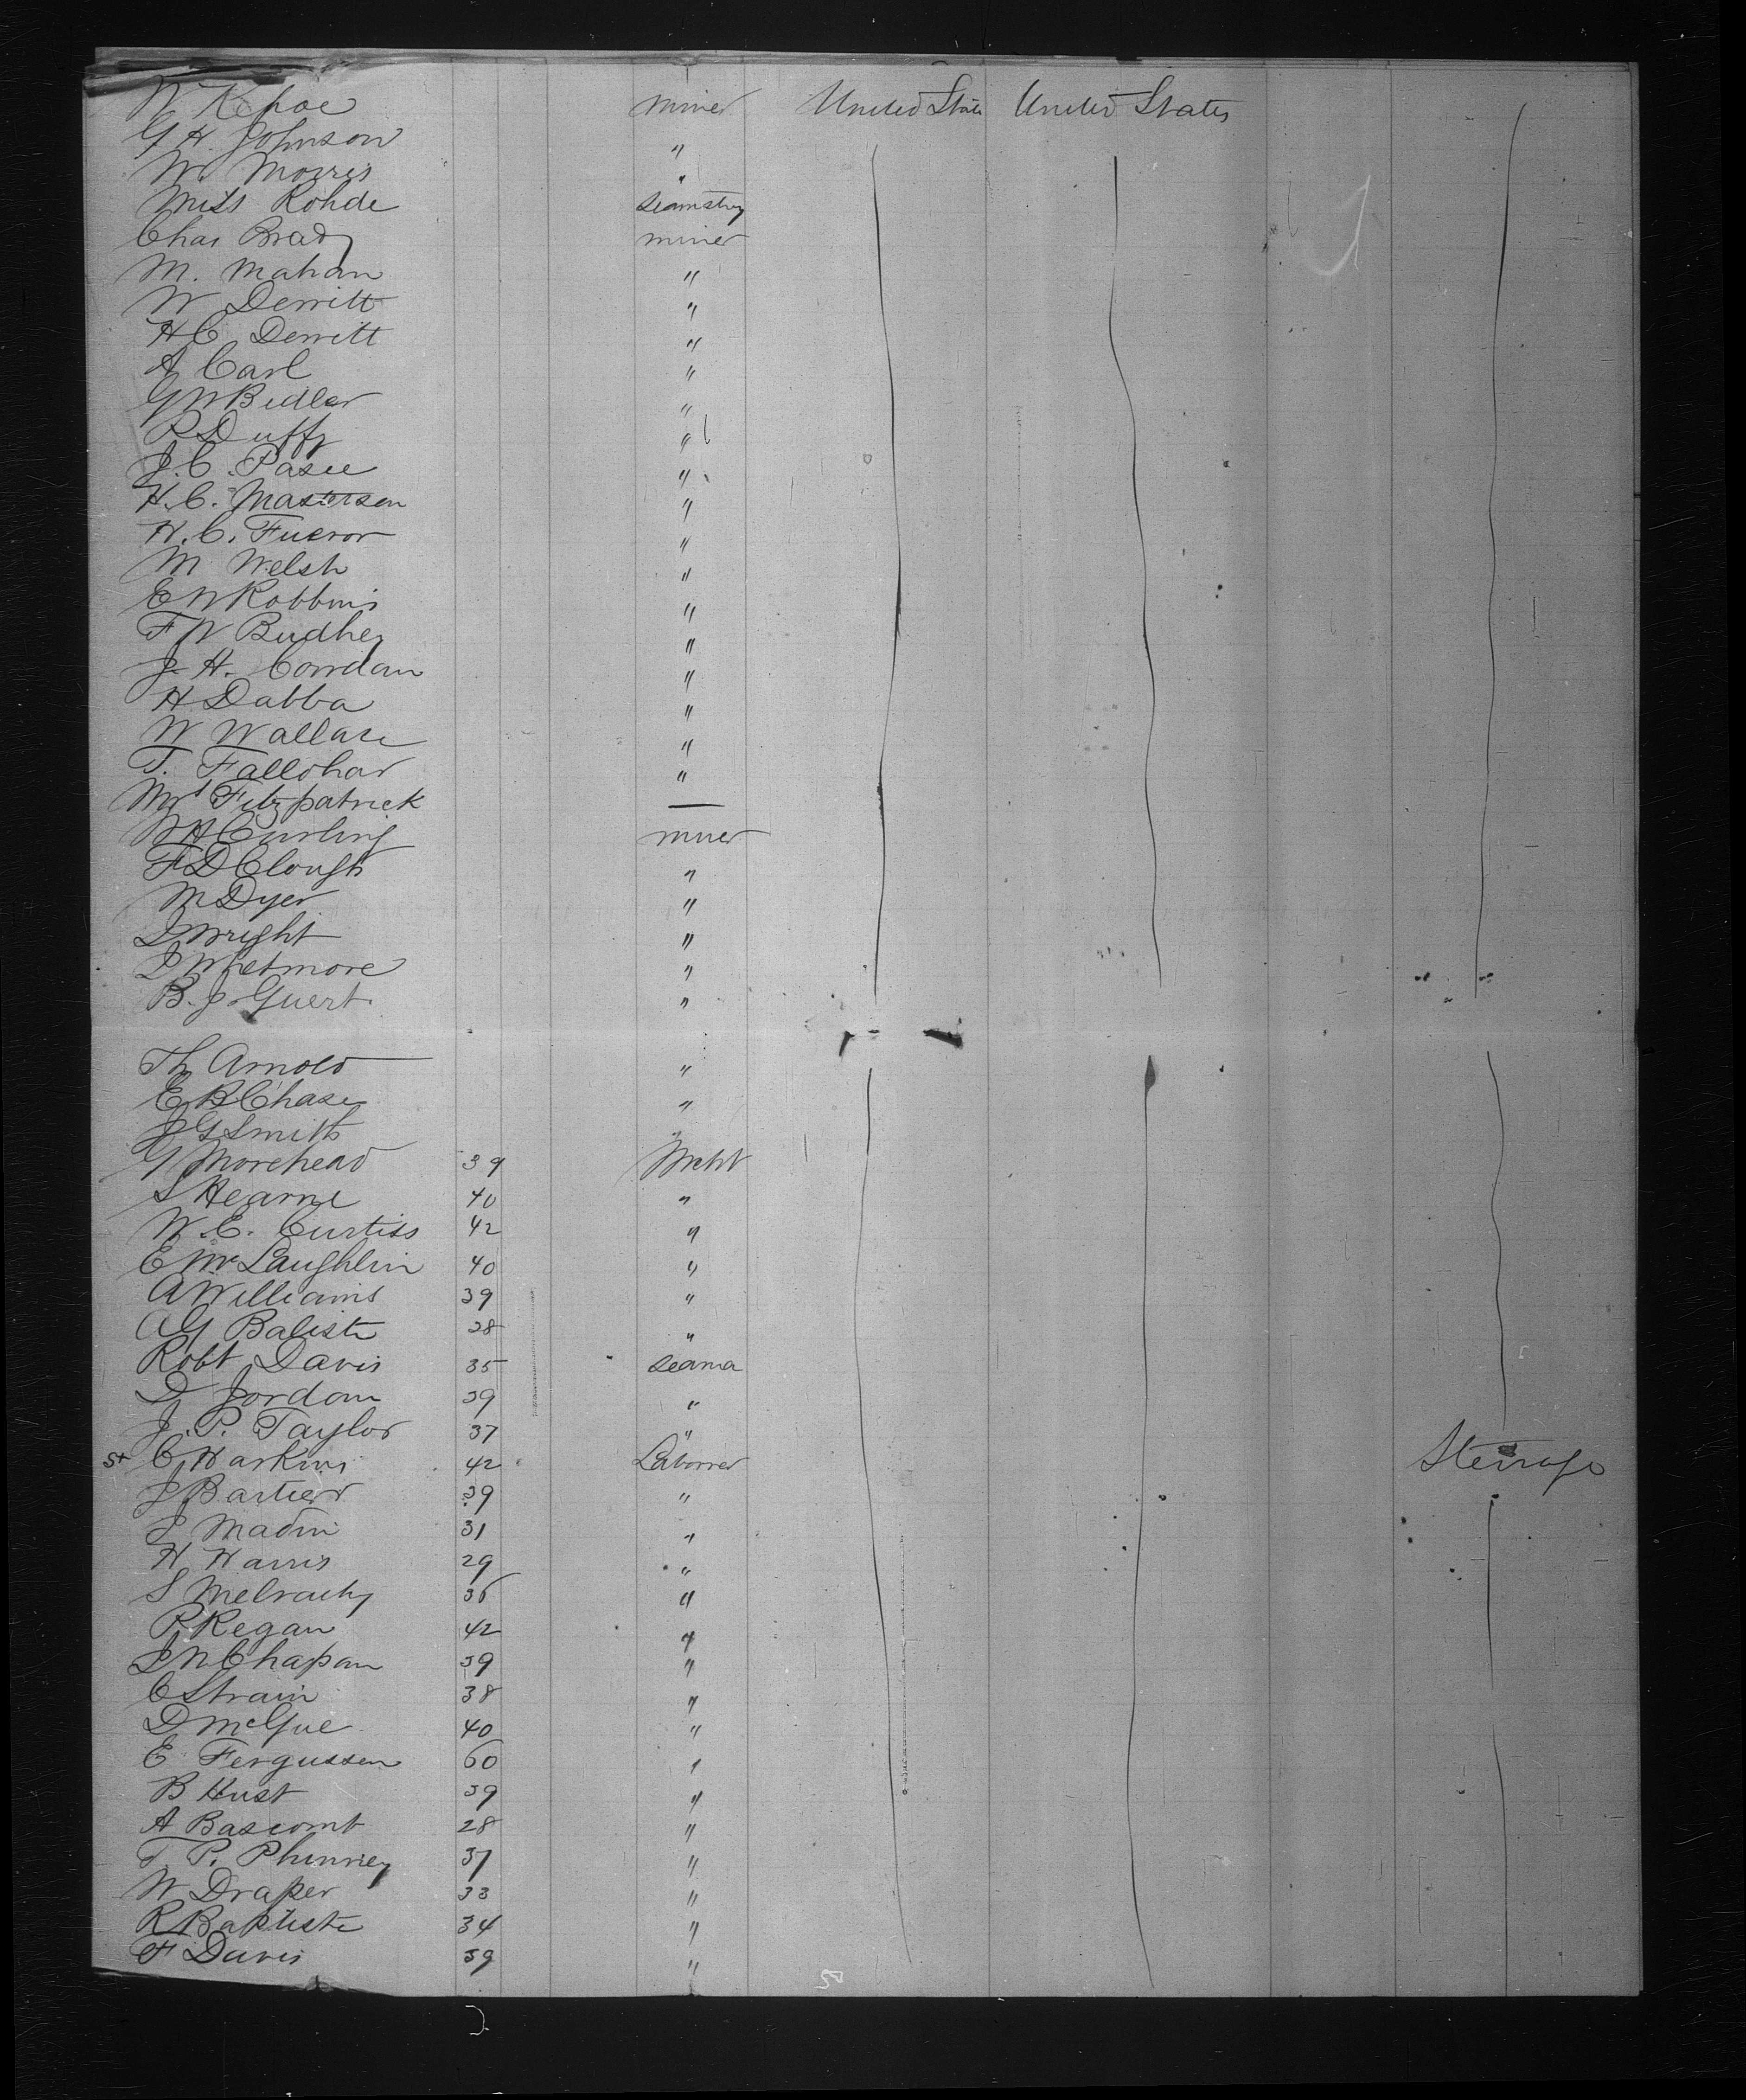 W Kehoe miner United State United States
G H. Johnson "
W. Morris "
Miss Rohde Seamstry
Chas Brady miner
M. Mahan "
W Derritt "
H C Derritt "
A Carl "
G W Bidler "
P Duffy "
J. C. Pasee "
H. C. Masterson "
H. C. Fueror "
M Welsh "
E N Robbins "
F W Budhey "
J. H. Corrdan "
H Dabba "
W Wallace "
T. Fallohar "
Mrs Fitzpatrick —
W H Curling miner
F D Clough "
M Dyer "
J Wright "
J Whetmore "
B. J. Guert "
Th Arnold "
E B Chase "
J G Smith "
G Morehead 39 Mcht
S Hearne 40 "
W. E. Curtiss 42 "
E McLaughlin 40 "
A Williams 39 "
A G Baliste 28 "
Robt Davis 35 Seama
D Jordan 39 "
J. P. Taylor 37 "
St C Harkins 42 Laborer Steirage
J Bartier 39 "
J Madin 31 "
H Harris 29 "
S Melrachy 36 "
P Regan 42 "
J N Chapan 39 "
C Strain 38 "
D McGue 40 "
E Fergussen 60 "
B Hust 39 "
A Bascomt 28 "
T. P. Phinney 37 "
W Draper 33 "
R Baptiste 34 "
F Davis 39 "